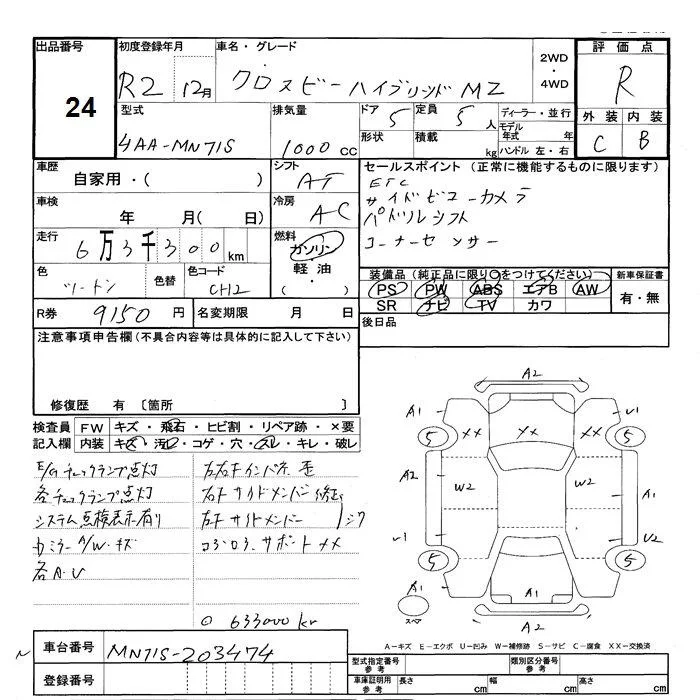 出品番号
24
初度登録年月
R2 12月
車名・グレード
クロスビー ハイブリッド MZ
2WD
・
4WD
評価点
R
外装 内装
C B
型式
4AA-MN71S
排気量
1000 cc
ドア
5
定員
5 人
形状
積載
kg
ディーラー・並行
モデル年式 年
ハンドル 左・右
車歴
自家用・( )
シフト
AT
車検
年 月( 日)
冷房
AC
走行
6万3千300km
燃料
ガソリン
・
軽油
( ・ )
色
ツートン
色替
色コード
CH2
セールスポイント (正常に機能するものに限ります)
ETC
サイドビューカメラ
パドルシフト
コーナーセンサー
装備品(純正品に限り○をつけてください)
PS PW ABS エアB AW
SR ナビ TV カワ
新車保証書
有・無
後日品
R券 9150 円
名変期限 月 日
注意事項申告欄(不具合内容等は具体的に記入して下さい)
修復歴 有 〔箇所 〕
検査員 FW キズ・飛石・ヒビ割・リペア跡・×要
記入欄 内装 キズ・汚レ・コゲ・穴・スレ・キレ・破レ
E/Gチェックランプ点灯
各チェックランプ点灯
システム点検表示有り
カミラー A/W・キズ
各A・U
右右Fインパネ 歪
右F サイドメンバー 修正
左F サイドメンバー シワ
コアロア、サポート ××
◎ 633000kr
車台番号 MN71S-203474
登録番号
A2
A1
U1
5
5
××
××
××
A2
W2
W2
A1
U1
U2
5
5
A1
A1
A1
A2
スペア
A-キズ E-エクボ U-凹み W-補修跡 S-サビ C-腐食 XX-交換済
型式指定番号
参考
類別区分番号
参考
車庫証明用
参考
長さ cm
幅 cm
高さ cm